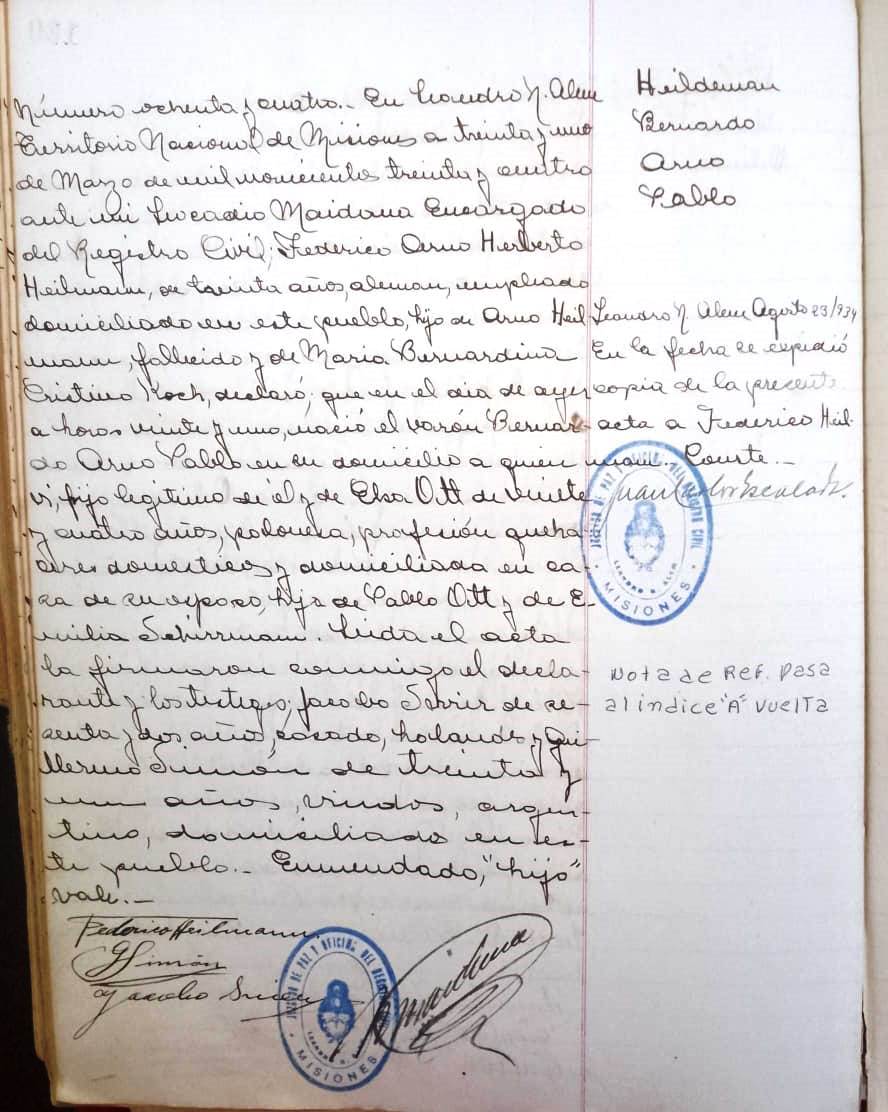 Número ochenta y cuatro.- En Leandro N. Alem
Territorio Nacional de Misiones a treinta y uno
de Marzo de mil novecientos treinta y cuatro
ante mi Leocadio Maidana Encargado
del Registro Civil; Federico Arno Herberto
Heilmann, de treinta años, aleman, empleado
domiciliado en este pueblo, hijo de Arno Heil
mann, fallecido y de Maria Bernardina
Cristina Koch, declaró; que en el dia de ayer
a horas veinte y uno, nació el varón Bernar-
do Arno Pablo en su domicilio a quien
vi, hijo legitimo de él y de Elsa Ott de veinte
y cuatro años, polonesa, profesión queha-
ceres domesticos y domiciliada en ca-
sa de su esposo, hija de Pablo Ott y de E-
milia Schirrmann. Leida el acta
la firmaron conmigo el decla-
rante y los testigos; Jacobo de se-
senta y dos años, casado, holandés y Gui-
llermo Simón de treinta y
un años, viudos, argen-
tino, domiciliado en es-
te pueblo.- Enmendado, "hijo"
vale.-
Federico Heilmann.
G Simón
Jacobo
Maidana
JUZGADO DE PAZ Y OFICINA DEL REGISTRO CIVIL
LEANDRO N. ALEM
MISIONES
Heildeman
Bernardo
Arno
Pablo
Leandro N Alem Agosto 23/934
En la fecha se expidió
copia de la presente
acta a Federico Heil-
mann. Conste.-
JUZGADO DE PAZ Y OFICINA DEL REGISTRO CIVIL
LEANDRO N. ALEM
MISIONES
Nota de Ref. pasa
al indice "A" vuelta